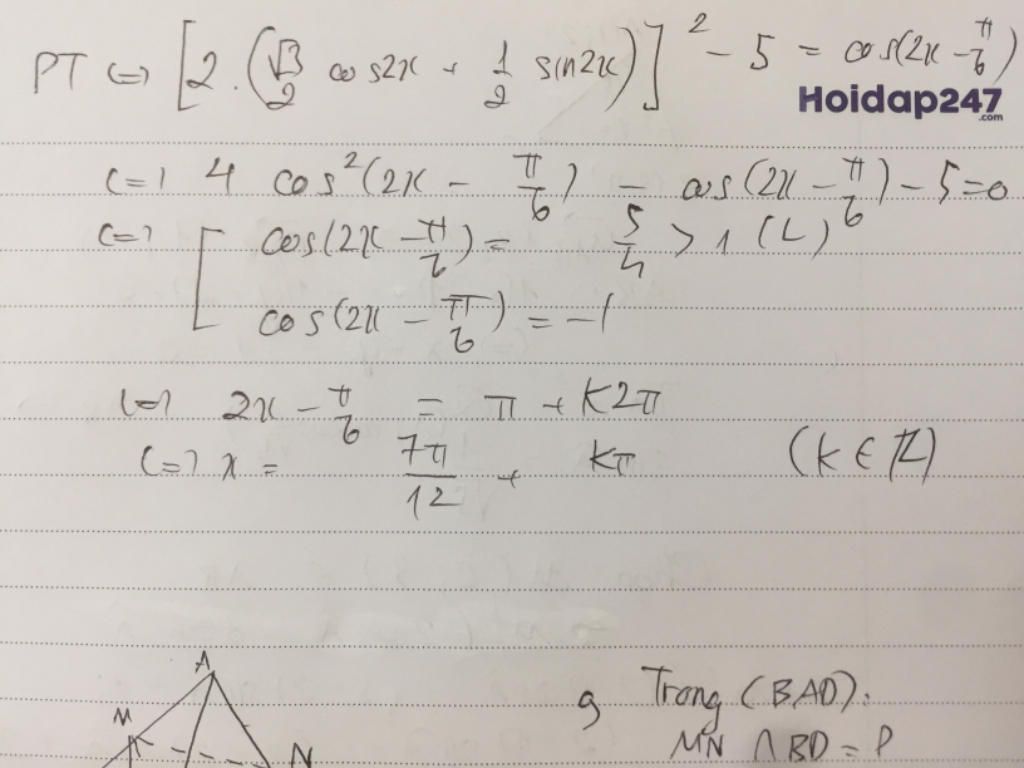 PT <=> [2.(√3/2 cos2x + 1/2 sin2x)]² - 5 = cos(2x - π/6)
Hoidap247
.com
<=> 4 cos²(2x - π/6) - cos(2x - π/6) - 5 = 0
<=> [ cos(2x - π/6) = 5/4 > 1 (L)
cos(2x - π/6) = -1
<=> 2x - π/6 = π + k2π
<=> x = 7π/12 + kπ (k ∈ ℤ)
A
M
N
Trong (BAD):
MN ∩ BD = P